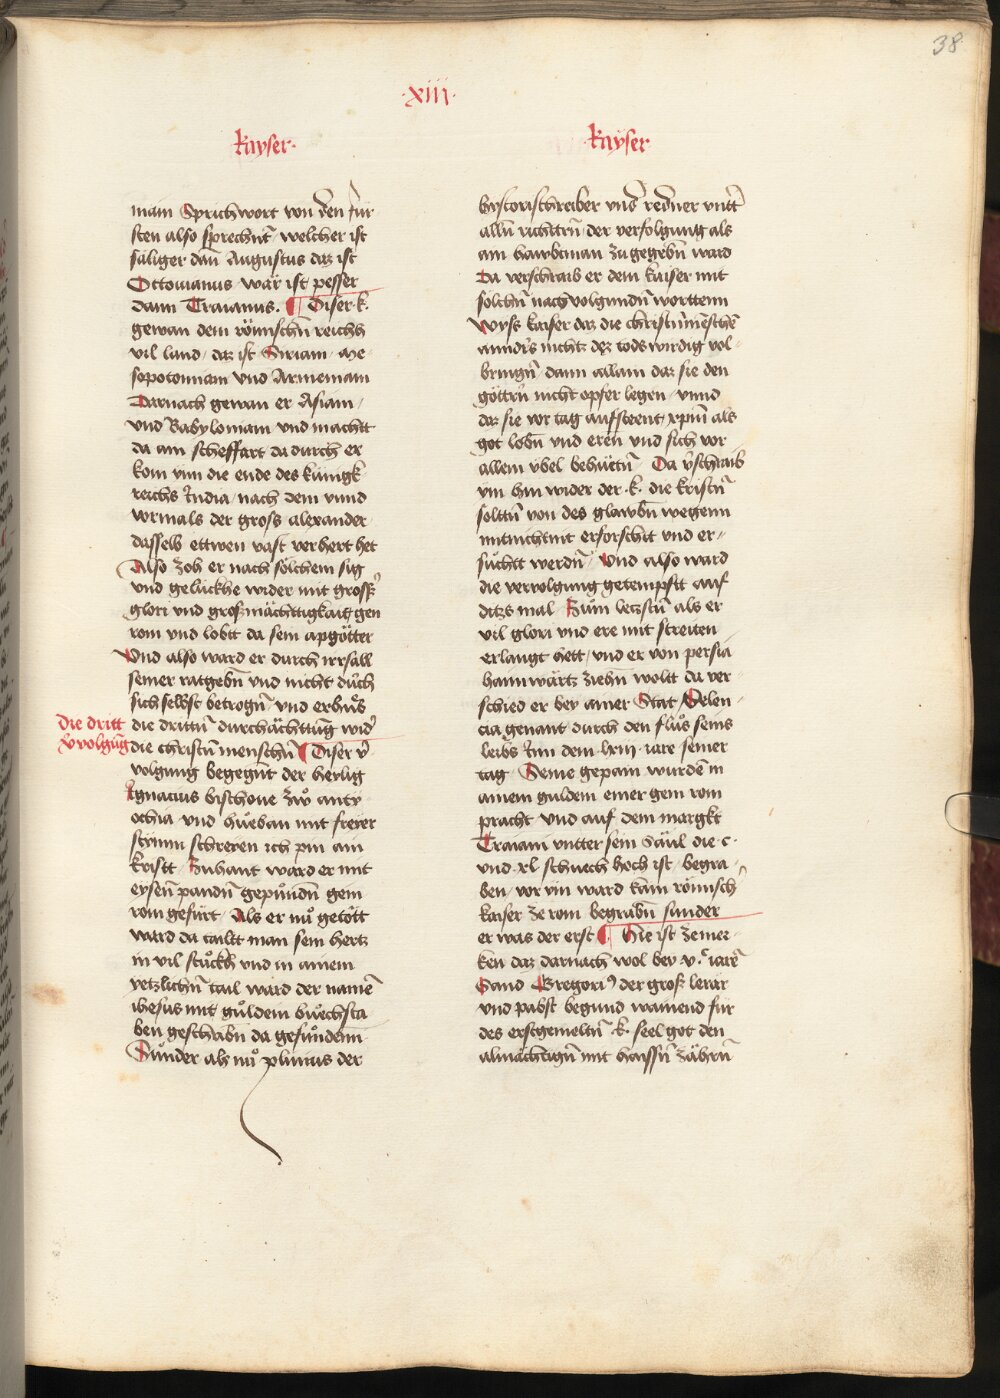 38
·xiij·
kayser·
main Sprichwort von den für-
sten also sprechnt̄ welcher ist
säliger dan̄ Augustus daz ist
Octouianus wär ist pesser
dann Traianus. ¶ Diser ·k·
gewan dem römischn̄ reichs
vil land / daz ist Siriam / me-
sopotoniam vnd Armeniam
Darnach gewan er Asiam /
vnd Babyloniam vnd machtt
da ain scheffart da durch er
kom vnn die ende des künigk
reichs India / nach dem vnnd
vormals der gross alexander
dasselb ettwen vast verhert het
Also zoh er nach solchem sig
vnd gelückhe wider mit grosser
glori vnd grossmächttigkaitt gen
rom vnd lobtt da sein apgötter
Vnd also ward er durch irrsall
seiner ratgebn̄ vnd nicht durch
sich selbst betrogn̄ vnd erhub
die dritt v̄volgūg
die drittn̄ durchächttūg wid̄
die christn̄ menschn̄ ¶ Diser v̄
volgung begegnt der heylig
Ignacius bischoue zw anty
ochia vnd hueban mit freyer
stymm schreyen ich pin ain
kristt / Zuhant ward er mit
eysen̄ pandn̄ gepundn̄ gem
rom gefürt / Als er nu getött
ward da tailtt man sein hertz
in vil stuckh vnd in ainem
yetzlichn̄ tail ward der namē
ihesus mit guldem buechsta
ben geschribn̄ da gefundenn
Sunder als nu plinius der
kayser
hystorischreiber vnd redner vntt̄
alln̄ richttrn̄ der verfolgung als
ain hawbtman zu gegebn̄ ward
Da verschraib er dem kaiser mit
solchn̄ nachvolgundn̄ worttenn
Wyss kaiser daz die christn̄mēschē
annd̄rs nichtz dez tods wirdig vol-
bringn̄ dann allain daz sie den
göttrn̄ nicht opfer legen / vnnd
daz sie vor tag aufsteent xpm̄ als
got lobn̄ vnd eren vnd sich vor
allem vbel behuettn̄ / Da v̄schraib
ym hin wider der ·k· die kristn̄
solttn̄ von des glawbn̄ wegenn
mitnichtnit erforschtt vnd er-
suchtt werdn̄ / Vnd also ward
die vervolgung getempftt auf
ditzs mal / Zum letzstn̄ als er
vil glori vnd ere mit streiten
erlangt hett / vnd er von persia
hainwartz ziehn̄ woltt da ver-
schied er bey ainer Stat Selen-
cia genant durch den flus seins
leibs Inn dem ·lxiij· iare seiner
tag / Seine gepain wurden in
ainem guldem eimer gem rom
pracht vnd auf dem margkt
Traiani vntter sein Säul die ·c·
vnd ·xl· schuech hoch ist / begra-
ben / vor ym ward kain römisch
kaiser ze rom begrabn̄ sunder
er was der erst ¶ Hie ist ze mer-
ken daz darnach wol bey v·ᶜ iarē
Sand Gregori⁹ der gross lerär
vnd pabst begund wainend für
des erstgemeltn̄ ·k· seel got den
almächtign̄ mit haissn̄ zähern̄